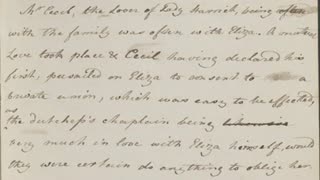 Mr Cecil, the Lover of Lady Harriet, being often
with the family was often with Eliza. A mutual
Love took place & Cecil having declared his
first, prevailed on Eliza to consent to a
private union, which was easy to be effected,
as the dutchess's chaplain being
very much in love with Eliza himself, would
they were certain do anything to oblige her.